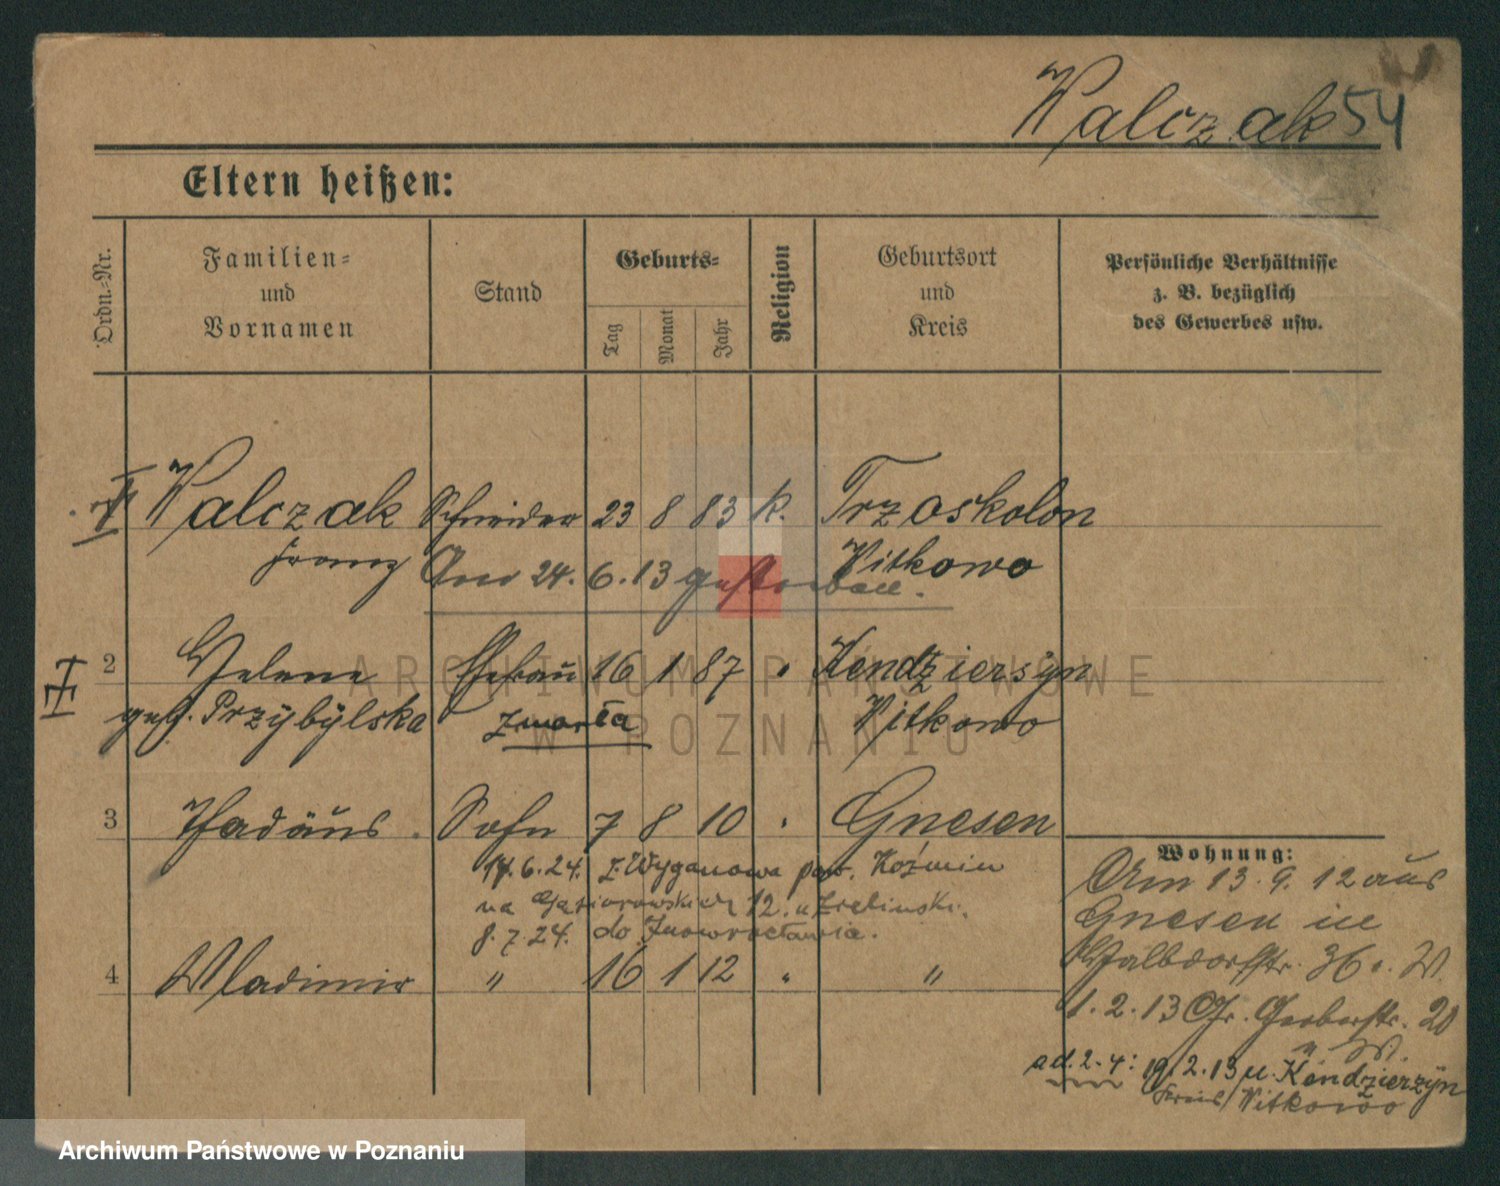 Walczak 54
Eltern heißen:
Ordn.-Nr.
Familien-
und
Vornamen
Stand
Geburts-
Tag
Monat
Jahr
Religion
Geburtsort
und
Kreis
Persönliche Verhältnisse
z. B. bezüglich
des Gewerbes usw.
Walczak Schneider 23 8 83 k. Trzoskolon
Franz Witkowo
Am 24. 6. 13 gestorben.
2 Helene Ehefrau 16 1 87 " Kendziersyn
geb. Przybylska zmarła Witkowo
3 Thadäus Sohn 7 8 10 " Gnesen
17.6.24. z Wyganowa pow. Koźmin
na Gąsiorowskich 12. u Zielinski.
8.7.24. do Inowrocławia.
4 Wladimir " 16 1 12 " "
Wohnung:
Am 13. 9. 12 aus
Gnesen in
36 b. W.
1. 2. 13 Gr. Gerberstr. 20
b. W.
ad. 2-4: 19. 2. 13 n. Kendzierzyn
Kreis Witkowo
ARCHIWUM PAŃSTWOWE
W POZNANIU
Archiwum Państwowe w Poznaniu